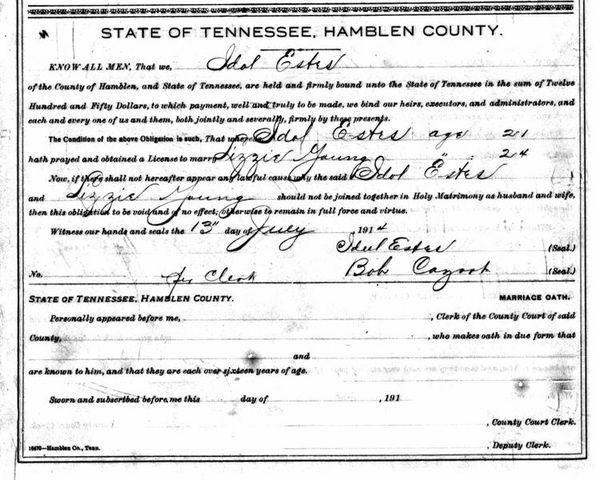 STATE OF TENNESSEE, HAMBLEN COUNTY.
KNOW ALL MEN, That we, Idol Estes
of the County of Hamblen, and State of Tennessee, are held and firmly bound unto the State of Tennessee in the sum of Twelve
Hundred and Fifty Dollars, to which payment, well and truly to be made, we bind our heirs, executors, and administrators, and
each and every one of us and them, both jointly and severally, firmly by these presents.
The Condition of the above Obligation is such, That whereas Idol Estes age 21
hath prayed and obtained a License to marry Lizzie Young " 24
Now, if there shall not hereafter appear any lawful cause why the said Idol Estes
and Lizzie Young should not be joined together in Holy Matrimony as husband and wife,
then this obligation to be void and of no effect; otherwise to remain in full force and virtue.
Witness our hands and seals the 13" day of July 1914
Idul Estes (Seal.)
No. Clerk Bob (Seal.)
STATE OF TENNESSEE, HAMBLEN COUNTY. MARRIAGE OATH.
Personally appeared before me, , Clerk of the County Court of said
County, , who makes oath in due form that
and
are known to him, and that they are each over sixteen years of age.
Sworn and subscribed before me this day of , 191
, County Court Clerk.
16470—Hamblen Co., Tenn. , Deputy Clerk.